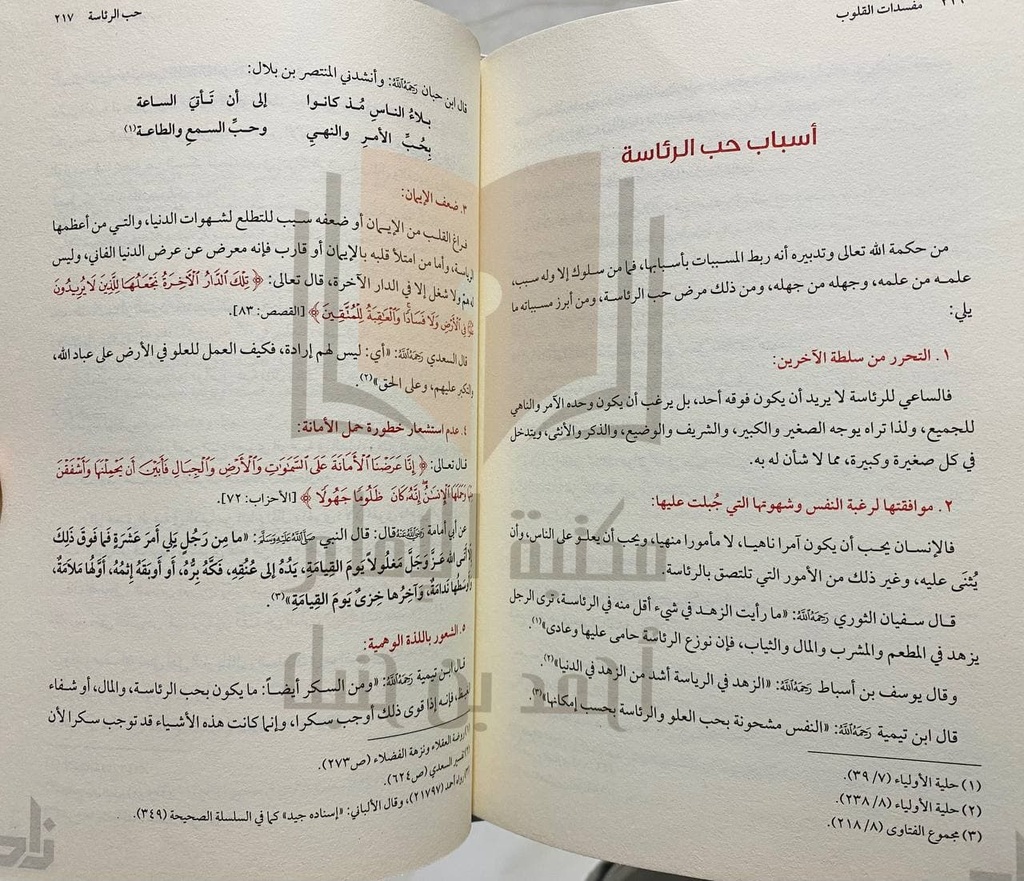 مفسدات القلوب
أسباب حب الرئاسة
من حكمة الله تعالى وتدبيره أنه ربط المسببات بأسبابها، فما من سلوك إلا وله سبب،
علمه من علمه، وجهله من جهله، ومن ذلك مرض حب الرئاسة، ومن أبرز مسبباته ما
يلي:
١. التحرر من سلطة الآخرين:
فالساعي للرئاسة لا يريد أن يكون فوقه أحد، بل يرغب أن يكون وحده الآمر والناهي
للجميع، ولذا تراه يوجه الصغير والكبير، والشريف والوضيع، والذكر والأنثى، ويتدخل
في كل صغيرة وكبيرة، مما لا شأن له به.
٢. موافقتها لرغبة النفس وشهوتها التي جُبلت عليها:
فالإنسان يحب أن يكون آمرا ناهيا، لا مأمورا منهيا، ويحب أن يعلو على الناس، وأن
يُثنَى عليه، وغير ذلك من الأمور التي تلتصق بالرئاسة.
قال سفيان الثوري رَحِمَهُ اللَّهُ: «ما رأيت الزهد في شيء أقل منه في الرئاسة، ترى الرجل
يزهد في المطعم والمشرب والمال والثياب، فإن نوزع الرئاسة حامى عليها وعادى»(١).
وقال يوسف بن أسباط رَحِمَهُ اللَّهُ: «الزهد في الرياسة أشد من الزهد في الدنيا»(٢).
قال ابن تيمية رَحِمَهُ اللَّهُ: «النفس مشحونة بحب العلو والرئاسة بحسب إمكانها»(٣).
(١) حلية الأولياء (٣٩/٧).
(٢) حلية الأولياء (٢٣٨/٨).
(٣) مجموع الفتاوى (٢١٨/٨).
حب الرئاسة ٢١٧
قال ابن حبان رَحِمَهُ اللَّهُ: وأنشدني المنتصر بن بلال:
بلاءُ الناسِ مُذ كانوا إلى أن تَأتيَ الساعة
بِحُبِّ الأمرِ والنهيِ وحبِّ السمعِ والطاعة(١)
٣. ضعف الإيمان:
فراغ القلب من الإيمان أو ضعفه سبب للتطلع لشهوات الدنيا، والتي من أعظمها
الرياسة، وأما من امتلأ قلبه بالإيمان أو قارب فإنه معرض عن عرض الدنيا الفاني، وليس
له همٌّ ولا شغل إلا في الدار الآخرة، قال تعالى: ﴿ تِلْكَ الدَّارُ الْآخِرَةُ نَجْعَلُهَا لِلَّذِينَ لَا يُرِيدُونَ
عُلُوًّا فِي الْأَرْضِ وَلَا فَسَادًا وَالْعَاقِبَةُ لِلْمُتَّقِينَ ﴾ [القصص: ٨٣].
قال السعدي رَحِمَهُ اللَّهُ: «أي: ليس لهم إرادة، فكيف العمل للعلو في الأرض على عباد الله،
والتكبر عليهم، وعلى الحق»(٢).
٤. عدم استشعار خطورة حمل الأمانة:
قال تعالى: ﴿ إِنَّا عَرَضْنَا الْأَمَانَةَ عَلَى السَّمَاوَاتِ وَالْأَرْضِ وَالْجِبَالِ فَأَبَيْنَ أَن يَحْمِلْنَهَا وَأَشْفَقْنَ
مِنْهَا وَحَمَلَهَا الْإِنسَانُ إِنَّهُ كَانَ ظَلُومًا جَهُولًا ﴾ [الأحزاب: ٧٢].
عن أبي أمامة رَضِيَ اللَّهُ عَنْهُ قال: قال النبي صَلَّى اللَّهُ عَلَيْهِ وَسَلَّمَ: «ما مِن رَجُلٍ يَلِي أمرَ عَشَرَةٍ فَمَا فَوقَ ذَلكَ
إلا أتى الله عَزَّ وَجَلَّ مَغلُولاً يَومَ القِيامَةِ، يَدُهُ إلى عُنُقِهِ، فَكَّهُ بِرُّهُ، أو أوبَقَهُ إثمُهُ، أوَّلُهَا مَلاَمَةٌ،
وأوسَطُها نَدامَةٌ، وَآخِرُها خِزيٌ يَومَ القِيامَةِ»(٣).
٥. الشعور باللذة الوهمية:
قال ابن تيمية رَحِمَهُ اللَّهُ: «ومن السكر أيضاً: ما يكون بحب الرئاسة، والمال، أو شفاء
الغيظ، فإنه إذا قوى ذلك أوجب سكرا، وإنما كانت هذه الأشياء قد توجب سكرا لأن
(١) روضة العقلاء ونزهة الفضلاء (ص٢٧٣).
(٢) تفسير السعدي (ص٦٢٤).
(٣) رواه أحمد (٢١٧٩٧)، وقال الألباني: «إسناده جيد» كما في السلسلة الصحيحة (٣٤٩).